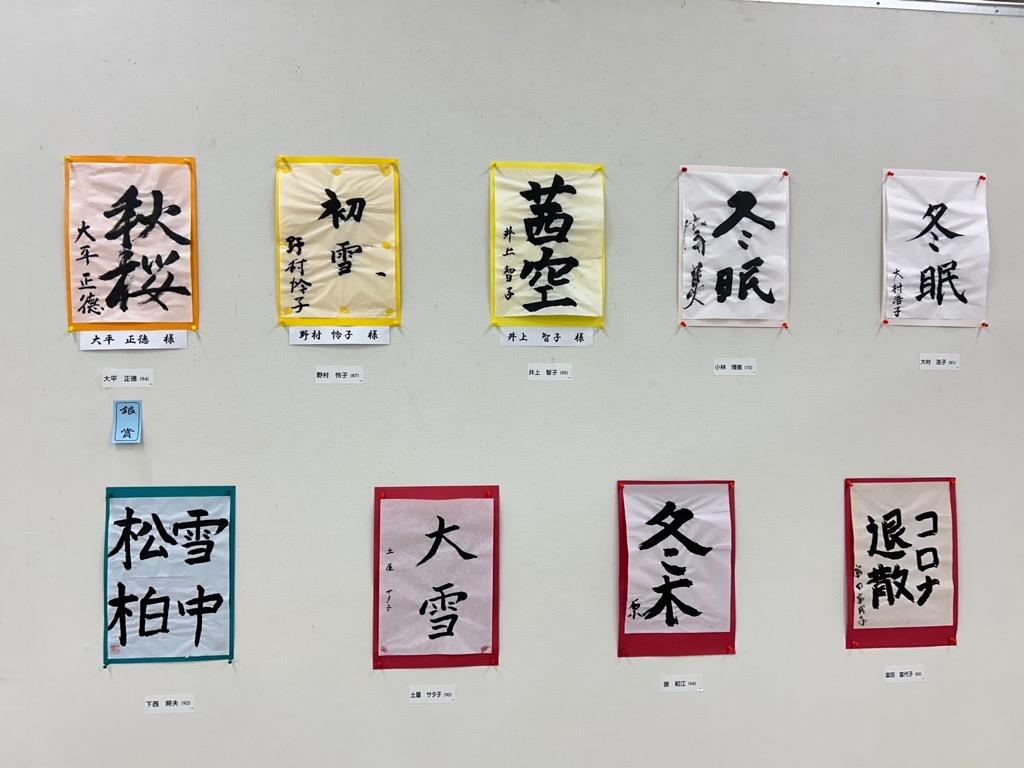 秋桜
大平正德
大平 正德 様
大平 正德 (94)
銀賞
初雪
野村怜子
野村 怜子 様
野村 怜子 (87)
茜空
井上智子
井上 智子 様
井上 智子 (90)
冬眠
小林 博美 (75)
冬眠
大村浩子
大村 浩子 (85)
雪中
松柏
下西 照夫 (92)
大雪
土屋 サタ子
土屋 サタ子 (90)
冬木
原
原 和江 (94)
コロナ
退散
富田富代子
富田 富代子 (83)